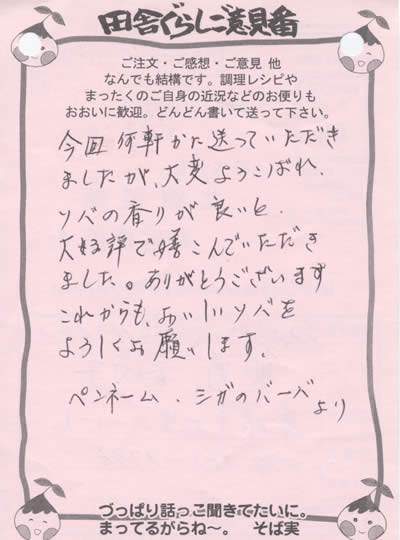 田舎ぐらしご意見番
ご注文・ご感想・ご意見 他
なんでも結構です。調理レシピや
まったくのご自身の近況などのお便りも
おおいに歓迎。どんどん書いて送って下さい。
今回 何軒かた送っていただき
ましたが、大変よろこばれ、
ソバの香りが良いと、
大好評で喜こんでいただき
ました。ありがとうございます
これからも、おいしいソバを
よろしくお願いします。
ペンネーム・シガのバーバ
より
づっぱり話っこ聞きてたいに。
まってるがらね〜。 そば実